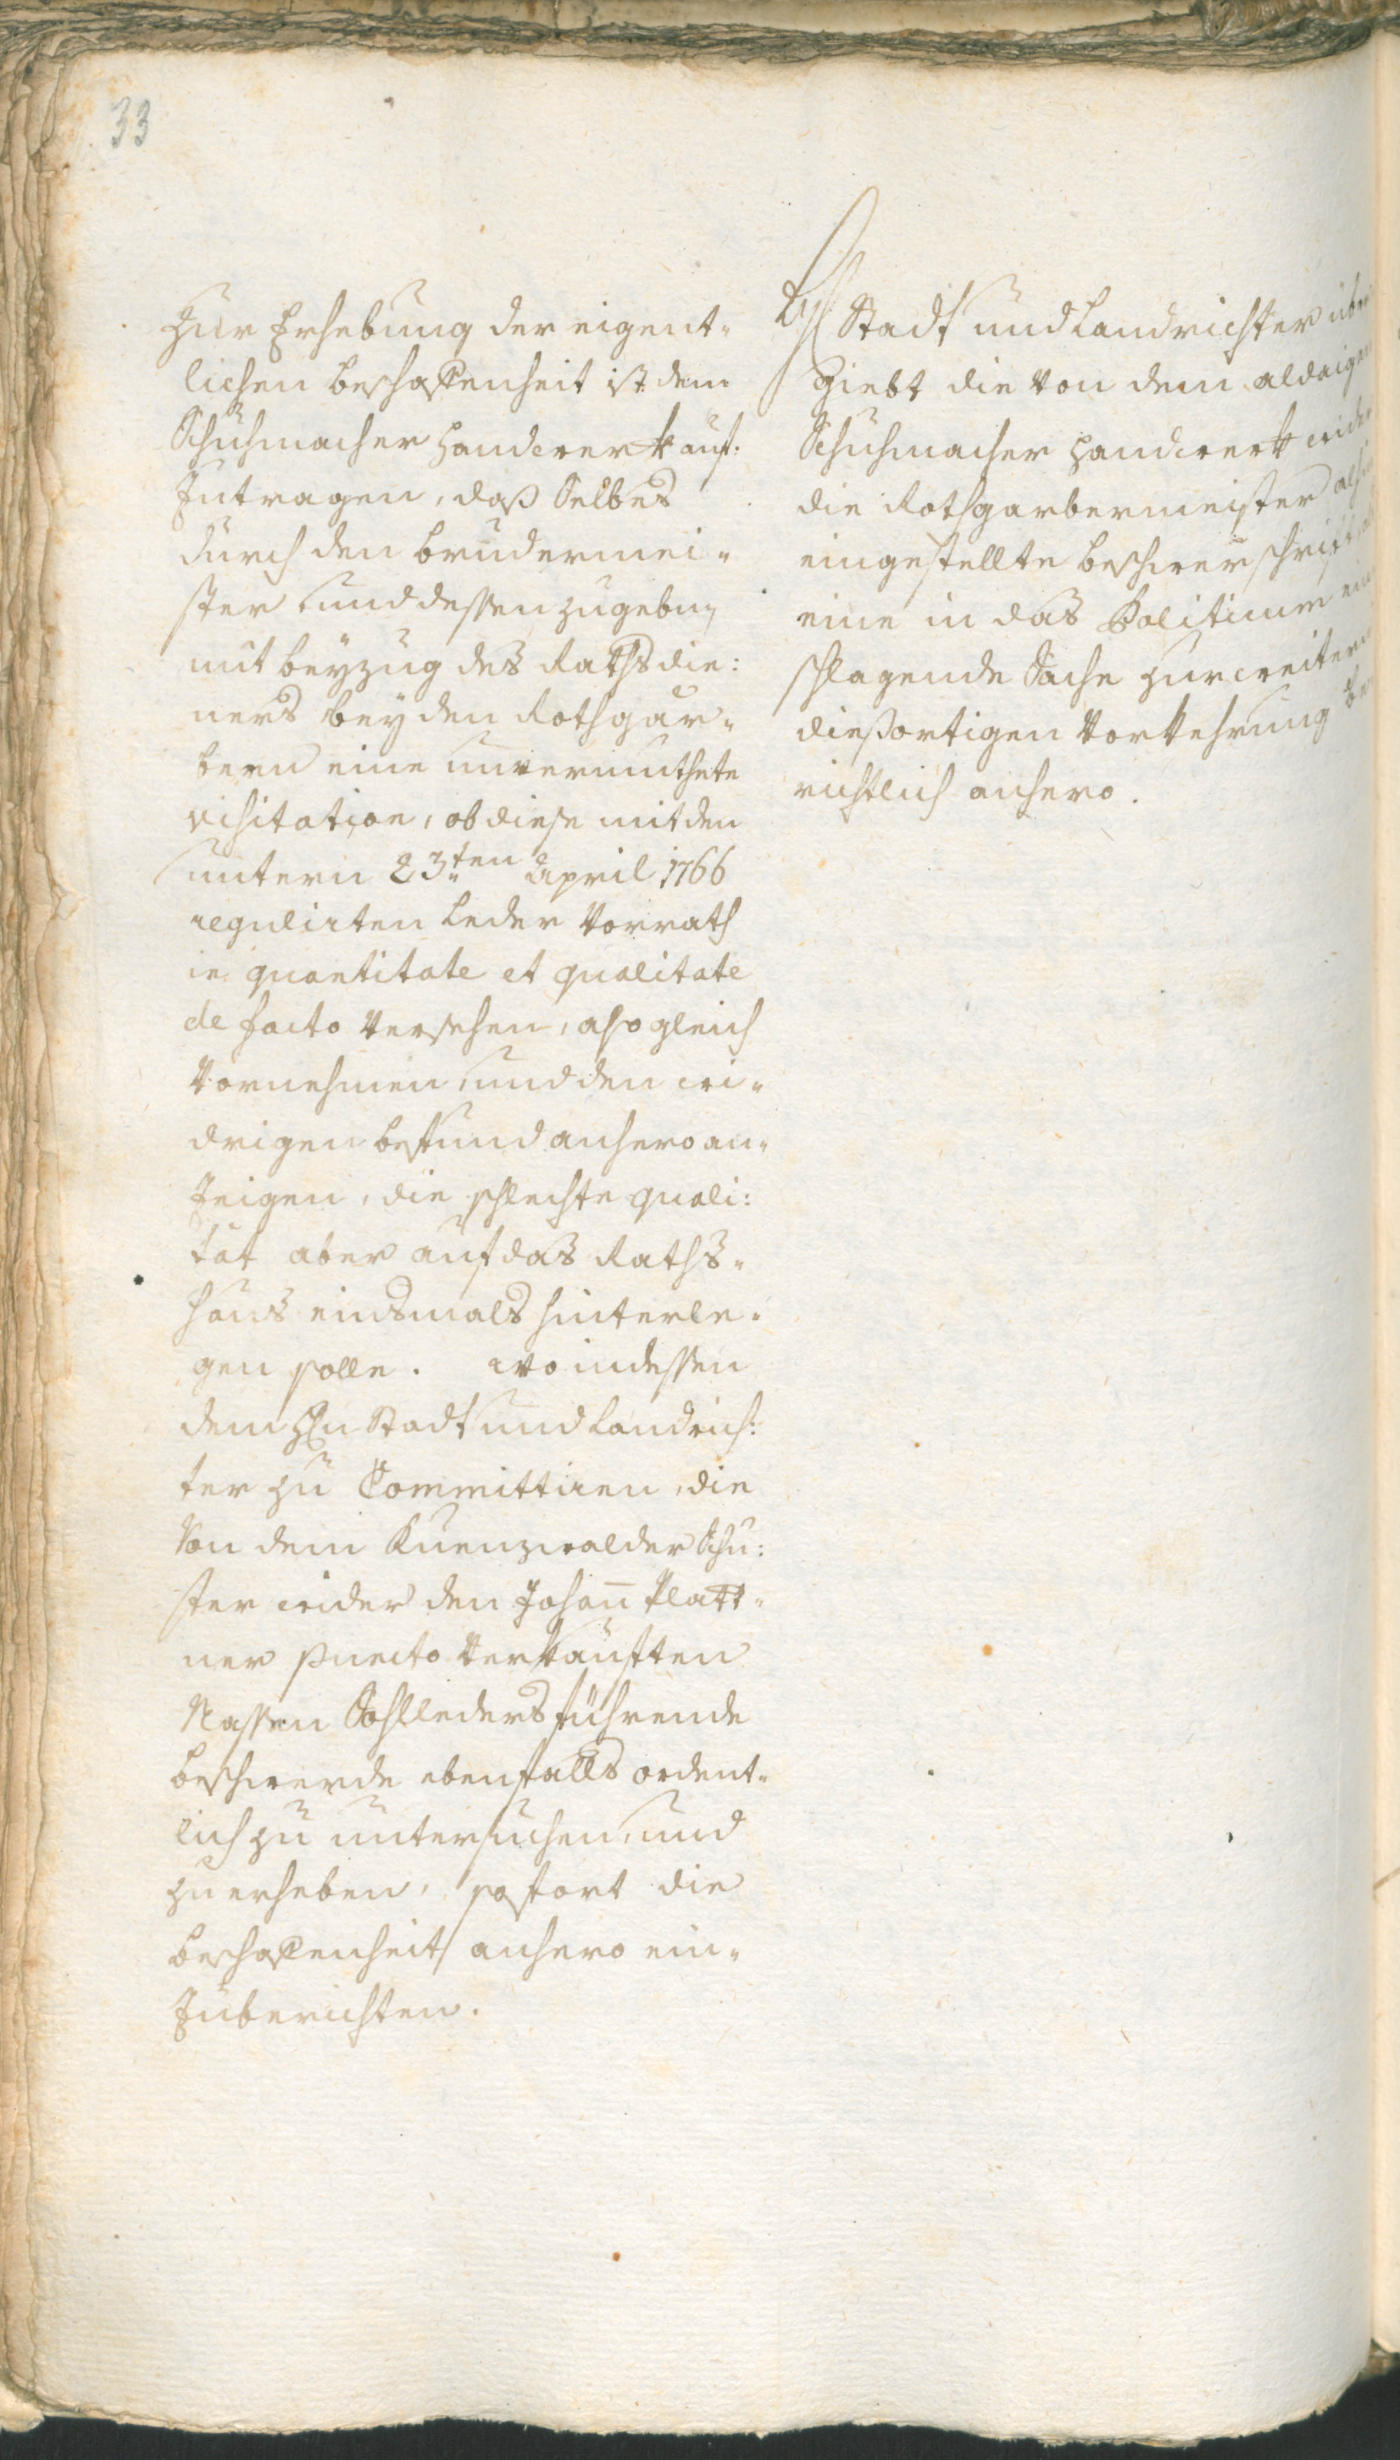 33
Zur Erhebung der eigent-
lichen beschaffenheit ist dem
Schuhmacher Handwerk auf:
zutragen, daß Selbes
durch den brudermei-
ster und dessen zugebn,
mit beyzug des Rathsdie:
ners bey den Rothgär-
bern eine unvermuthete
visitation, ob diese mit den
untern 23ten April 1766
regulirten Leder Vorrath
in quantitate et qualitate
de facto versehen, alsogleich
Vornehmen, und den wi-
drigen befund anhero an-
zeigen, die schlechte quali:
tät aber auf das Raths-
haus einsmals hinterle-
gen solle. wo indessen
dem Hn Stadt und Landrich:
ter zu Committiren, die
Von dem Kuenzwalder Schu:
ster wider den Johann Platt-
ner puncto Verkauften
Nassen Sohlleders führende
beschwerde ebenfalls ordent-
lich zu untersuchen, und
zu erheben, sofort die
beschaffenheit anhero ein-
zuberichten.
Stadt und Landrichter
giebt die von dem aldaigen
Schuhmacher Handwerk wider
die Rothgarbermeister
eingestellte beschwerschrift
eine in das Politicum
schlagende Sache zur weitern
dießortigen Vorkehrung be
richtlich anhero.